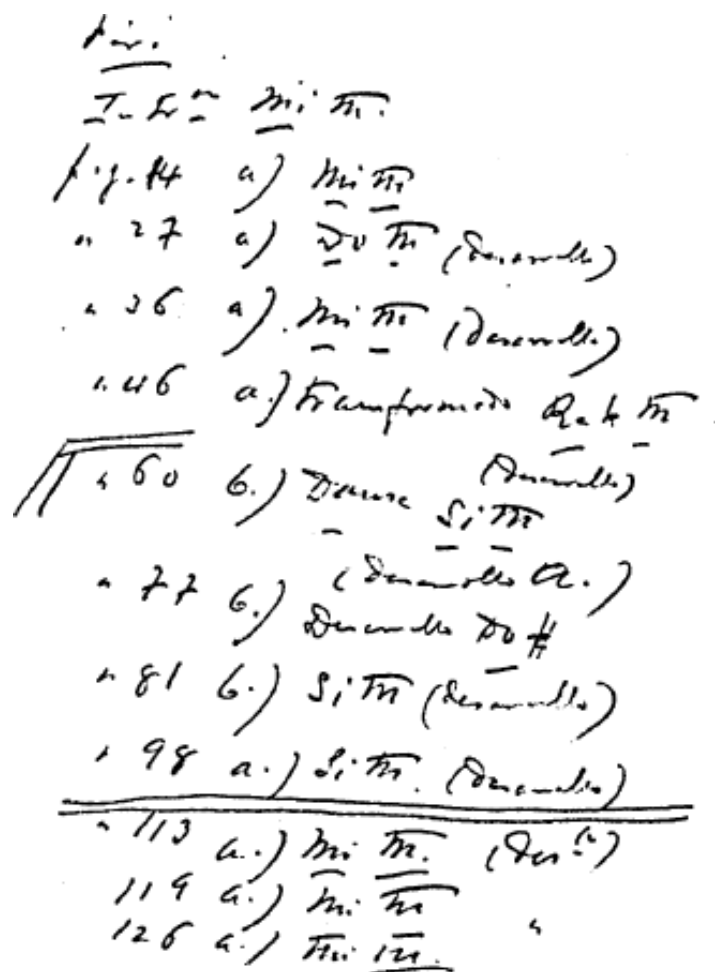 Mi m.
pig. 14 a) Mi m
" 27 a) Do m (Desarrollo)
" 36 a). Mi m (Desarrollo)
" 46 a.) Transformado m
(Desarrollo)
" 60 b.) Si m
(Desarrollo a.)
" 77 b.)
Desarrollo Do #
" 81 b.) Si m (Desarrollo)
" 98 a.) Si m. (Desarrollo)
" 113 a.) Mi m. (Des.lo)
119 a.) Mi m "
126 a.) Mi m.